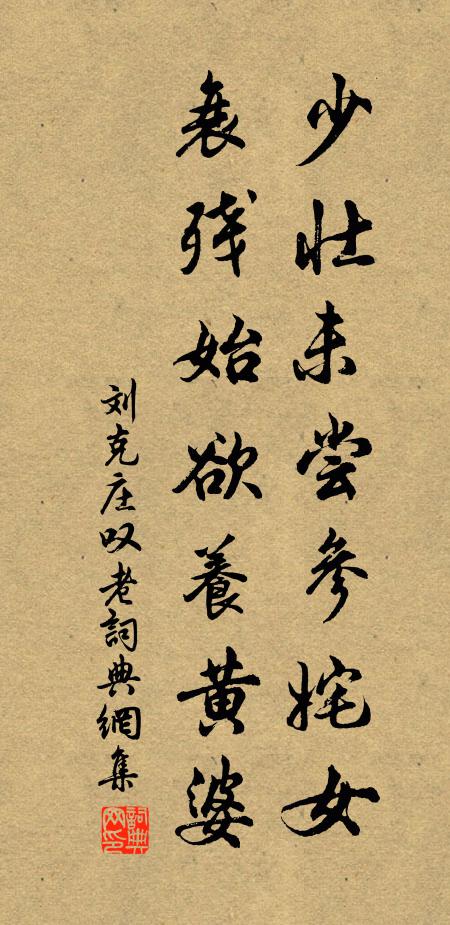 少壮未尝參姹女
衰残始欲養黄婆
刘克庄叹老詞典網集
詞典网印